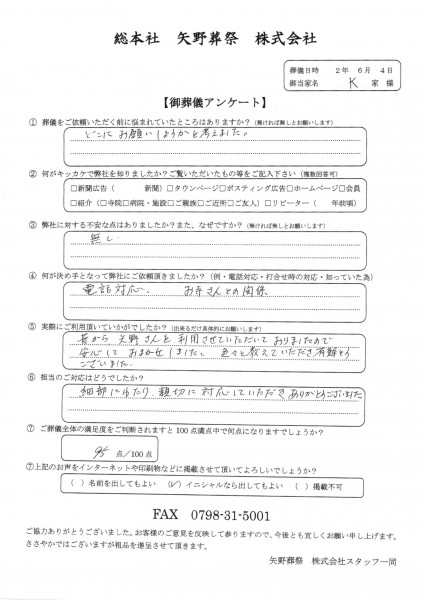 総本社 矢野葬祭 株式会社
葬儀日時 2年 6月 4日
御当家名 K 家 様
【御葬儀アンケート】
① 葬儀をご依頼いただく前に悩まれていたところはありますか?(無ければ無しとお願いします)
どこにお願いしようかと考えました。
② 何がキッカケで弊社を知りましたか?ご覧いただいたもの等をご記入下さい(複数回答可)
□新聞広告( 新聞)□タウンページ□ポスティング広告□ホームページ□会員
□紹介(□寺院□病院・施設□ご親族□ご近所□ご友人)□リピーター( 年前頃)
③ 弊社に対する不安な点はありましたか?また、なぜですか?(無ければ無しとお願いします)
無し
④ 何が決め手となって弊社にご依頼頂きましたか?(例・電話対応・打合せ時の対応・知っていた為)
電話対応、 お寺さんとの関係
⑤ 実際にご利用頂いていかがでしたか?(出来るだけ具体的にお願いします)
昔から矢野さんを利用させていただいておりましたので
安心しておまかせしました。色々と教えていただき有難とう
ございました。
⑥ 担当のご対応はどうでしたか?
細部にわたり、親切に対応していただきありがとうございました
⑦ ご葬儀全体の満足度をご判断されますと100点満点中で何点になりますでしょうか?
95 点/100点
⑦上記のお声をインターネットや印刷物などに掲載させて頂いてよろしいでしょうか?
( )名前を出してもよい (✓)イニシャルなら出してもよい ( )掲載不可
FAX 0798-31-5001
ご協力ありがとうございました。お客様のご意見を反映して参りますので、今後とも宜しくお願い申し上げます。
ささやかではございますが粗品を進呈させて頂きます。
矢野葬祭 株式会社スタッフ一同